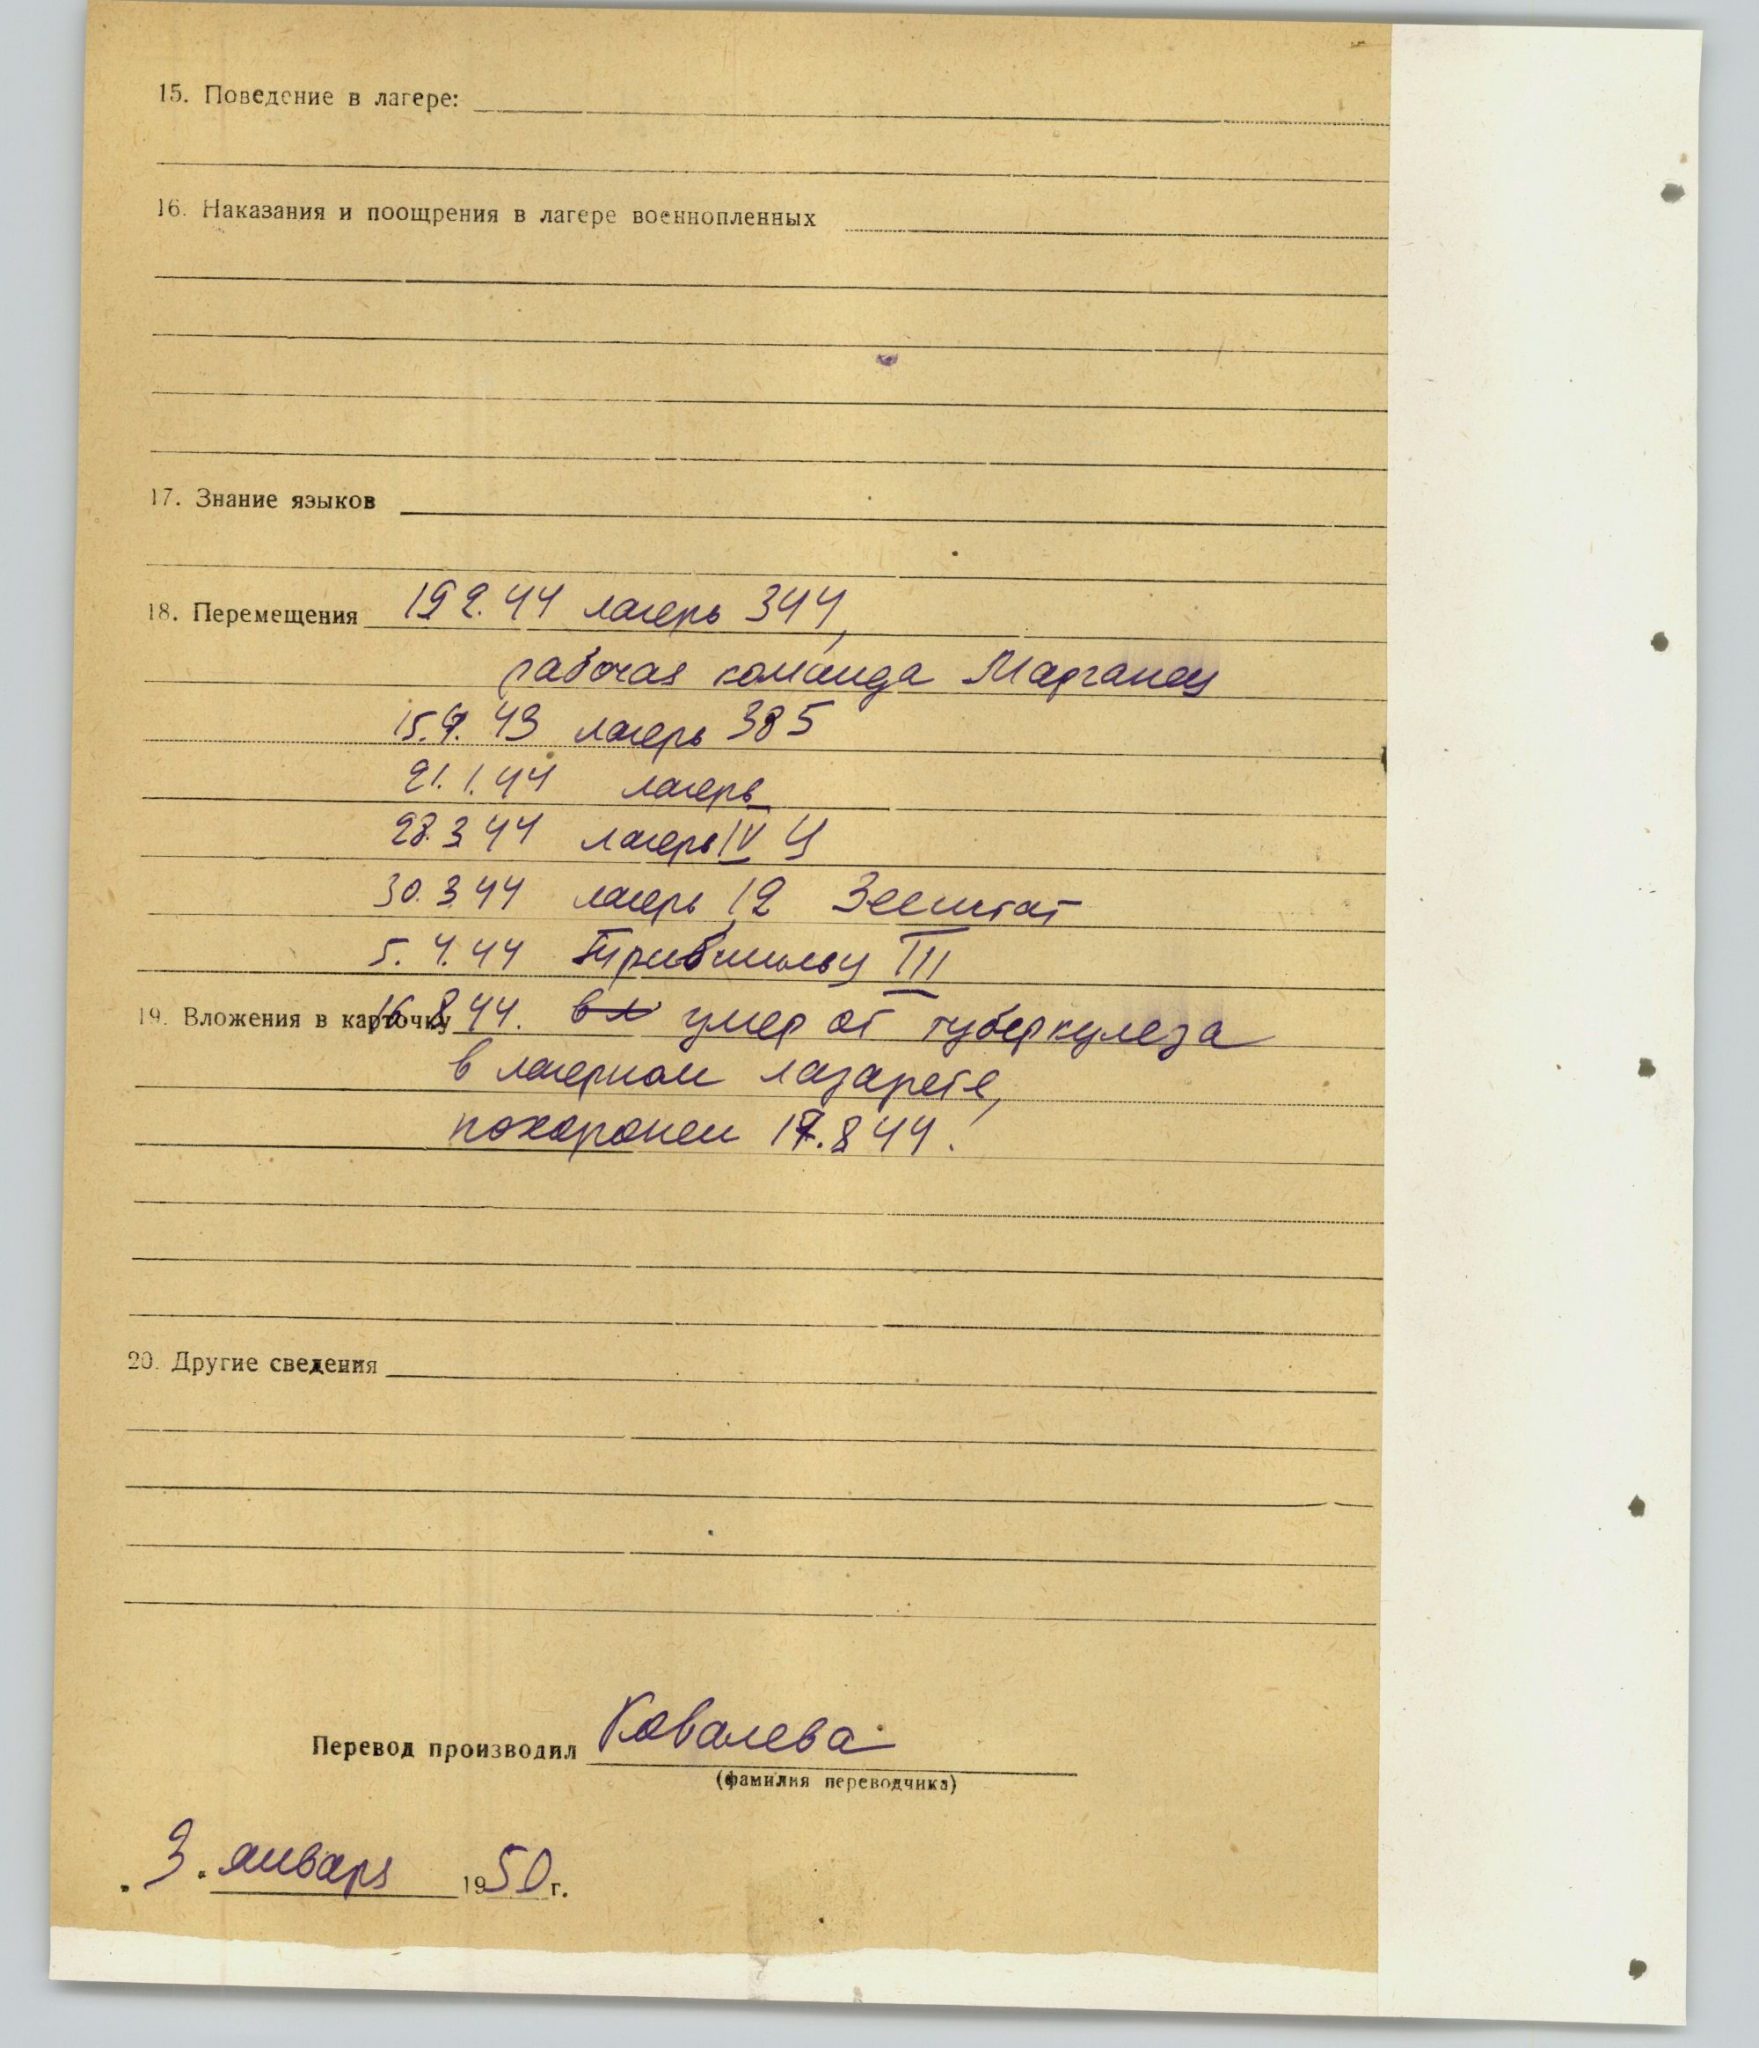 15. Поведение в лагере:
16. Наказания и поощрения в лагере военнопленных
17. Знание языков
18. Перемещения 19 2. 44 лагерь 344,
рабочая команда Марганец
15.9. 43 лагерь 385
21. 1. 44 лагерь
28. 3 44 лагерь IV Ц
30. 3. 44 лагерь 12 Зеештат
5. 4. 44 III
19. Вложения в карточку 16 8 44. умер от туберкулеза
в лагерном лазарете,
похоронен 17. 8 44.
20. Другие сведения
Перевод производил Ковалева
(фамилия переводчика)
„3. январь 1950 г.